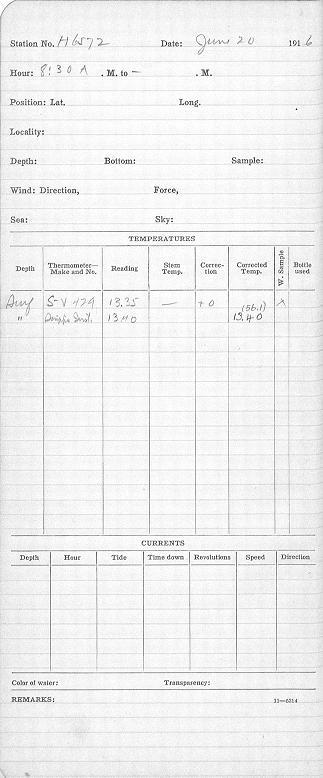 Station No. H6572 Date: June 20 1916
Hour: 8:30 A . M. to — . M.
Position: Lat. Long.
Locality:
Depth: Bottom: Sample:
Wind: Direction, Force,
Sea: Sky:
TEMPERATURES
Depth Thermometer—Make and No. Reading Stem Temp. Correction Corrected Temp. W. Sample Bottle used
Surf S-V 474 13.35 — +0 (56.1) x
" Scripps Inst. 13.40 13.40
CURRENTS
Depth Hour Tide Time down Revolutions Speed Direction
Color of water: Transparency:
REMARKS: 11—6214